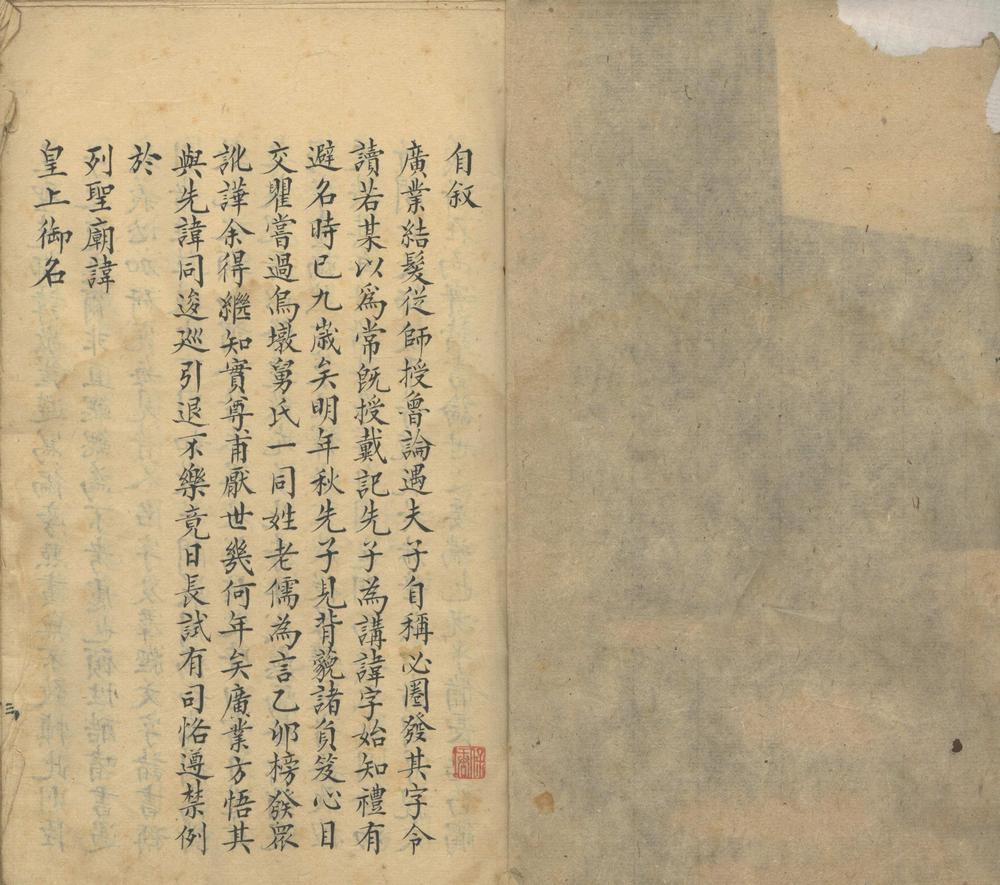 自叙
廣業結髮從師授魯論遇夫子自稱必圏發其字令
讀若某以爲常旣授戴記先子為講諱字始知禮有
避名時已九歲矣明年秋先子見背藐諸負笈心目
交瞿嘗過烏墩舅氏一同姓老儒為言乙卯榜發眾
訛譁余得繼知實尊甫厭世幾何年矣廣業方悟其
與先諱同逡廵引退不樂竟日長試有司恪遵禁例
於
列聖廟諱
皇上御名